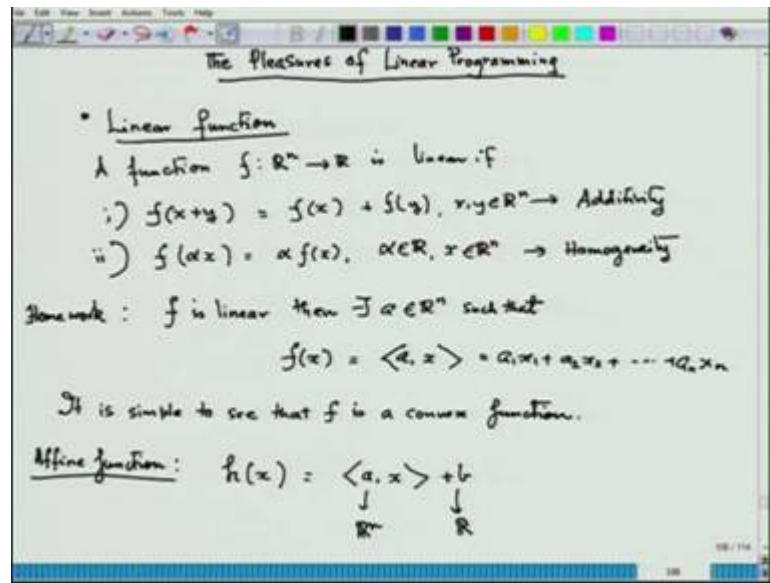 File Edit View Insert Actions Tools Help
The Pleasures of Linear Programming
• Linear function
A function f: ℝⁿ → ℝ is linear if
i) f(x+y) = f(x) + f(y), x,y ∈ ℝⁿ → Additivity
ii) f(αx) = α f(x), α∈ℝ, x ∈ℝⁿ → Homogeneity
Homework : f is linear then ∃ a ∈ ℝⁿ such that
f(x) = ⟨a, x⟩ = a₁x₁ + a₂x₂ + --- + aₙxₙ
It is simple to see that f is a convex function.
Affine function : h(x) = ⟨a, x⟩ + b
↓ ↓
ℝⁿ ℝ